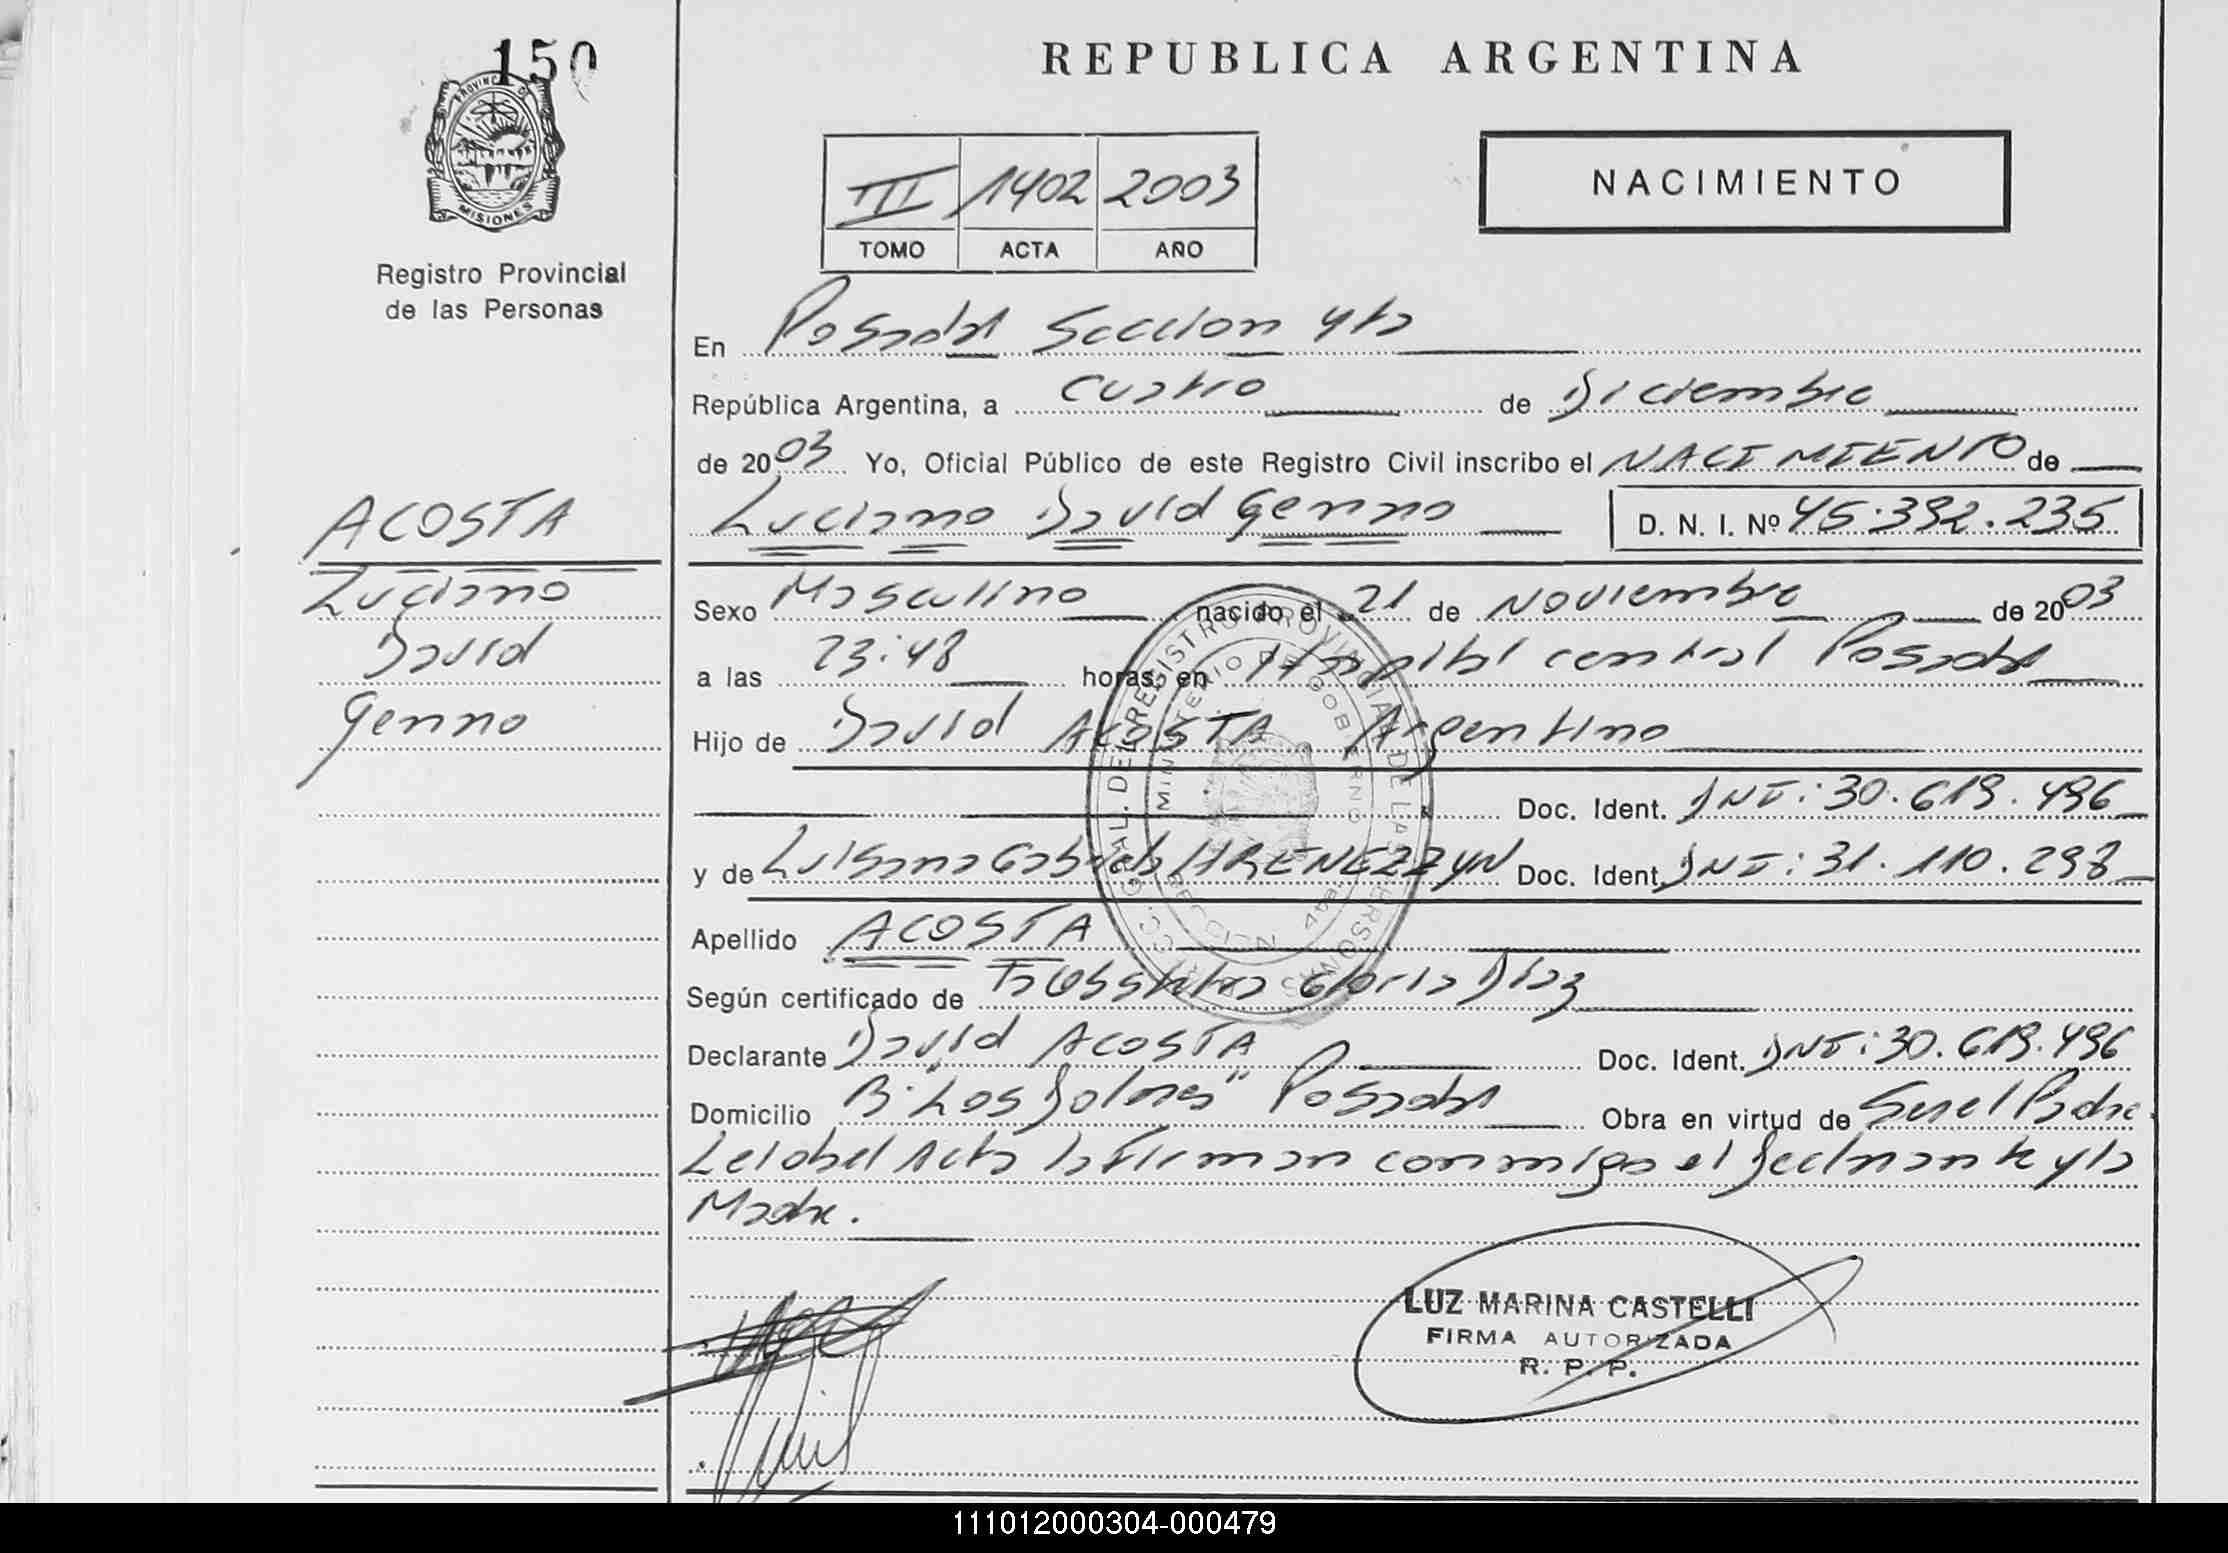 150
PROVINCIA DE
MISIONES
Registro Provincial
de las Personas
REPUBLICA ARGENTINA
III 1402 2003
TOMO ACTA AÑO
NACIMIENTO
En Posadas Seccion 4ta
República Argentina, a cuatro de Diciembre
de 2003 Yo, Oficial Público de este Registro Civil inscribo el NACIMIENTO de
Luciano David Genno D. N. I. Nº 45.392.235
ACOSTA
Luciano
David
Genno
Sexo Masculino nacido el 21 de Noviembre de 2003
a las 23:48 horas, en Hospital central Posadas
Hijo de David ACOSTA Argentino
Doc. Ident. DNI: 30.619.496
y de Luisana Gabriela Doc. Ident. DNI: 31.110.298
Apellido ACOSTA
Según certificado de Gloria Diaz
Declarante David ACOSTA Doc. Ident. DNI: 30.619.496
Domicilio B: "Los" Posadas Obra en virtud de Ser el Padre
Leida el Acta la Firman conmigo el Declarante y la
Madre.
LUZ MARINA CASTELLI
FIRMA AUTORIZADA
R. P. P.
111012000304-000479